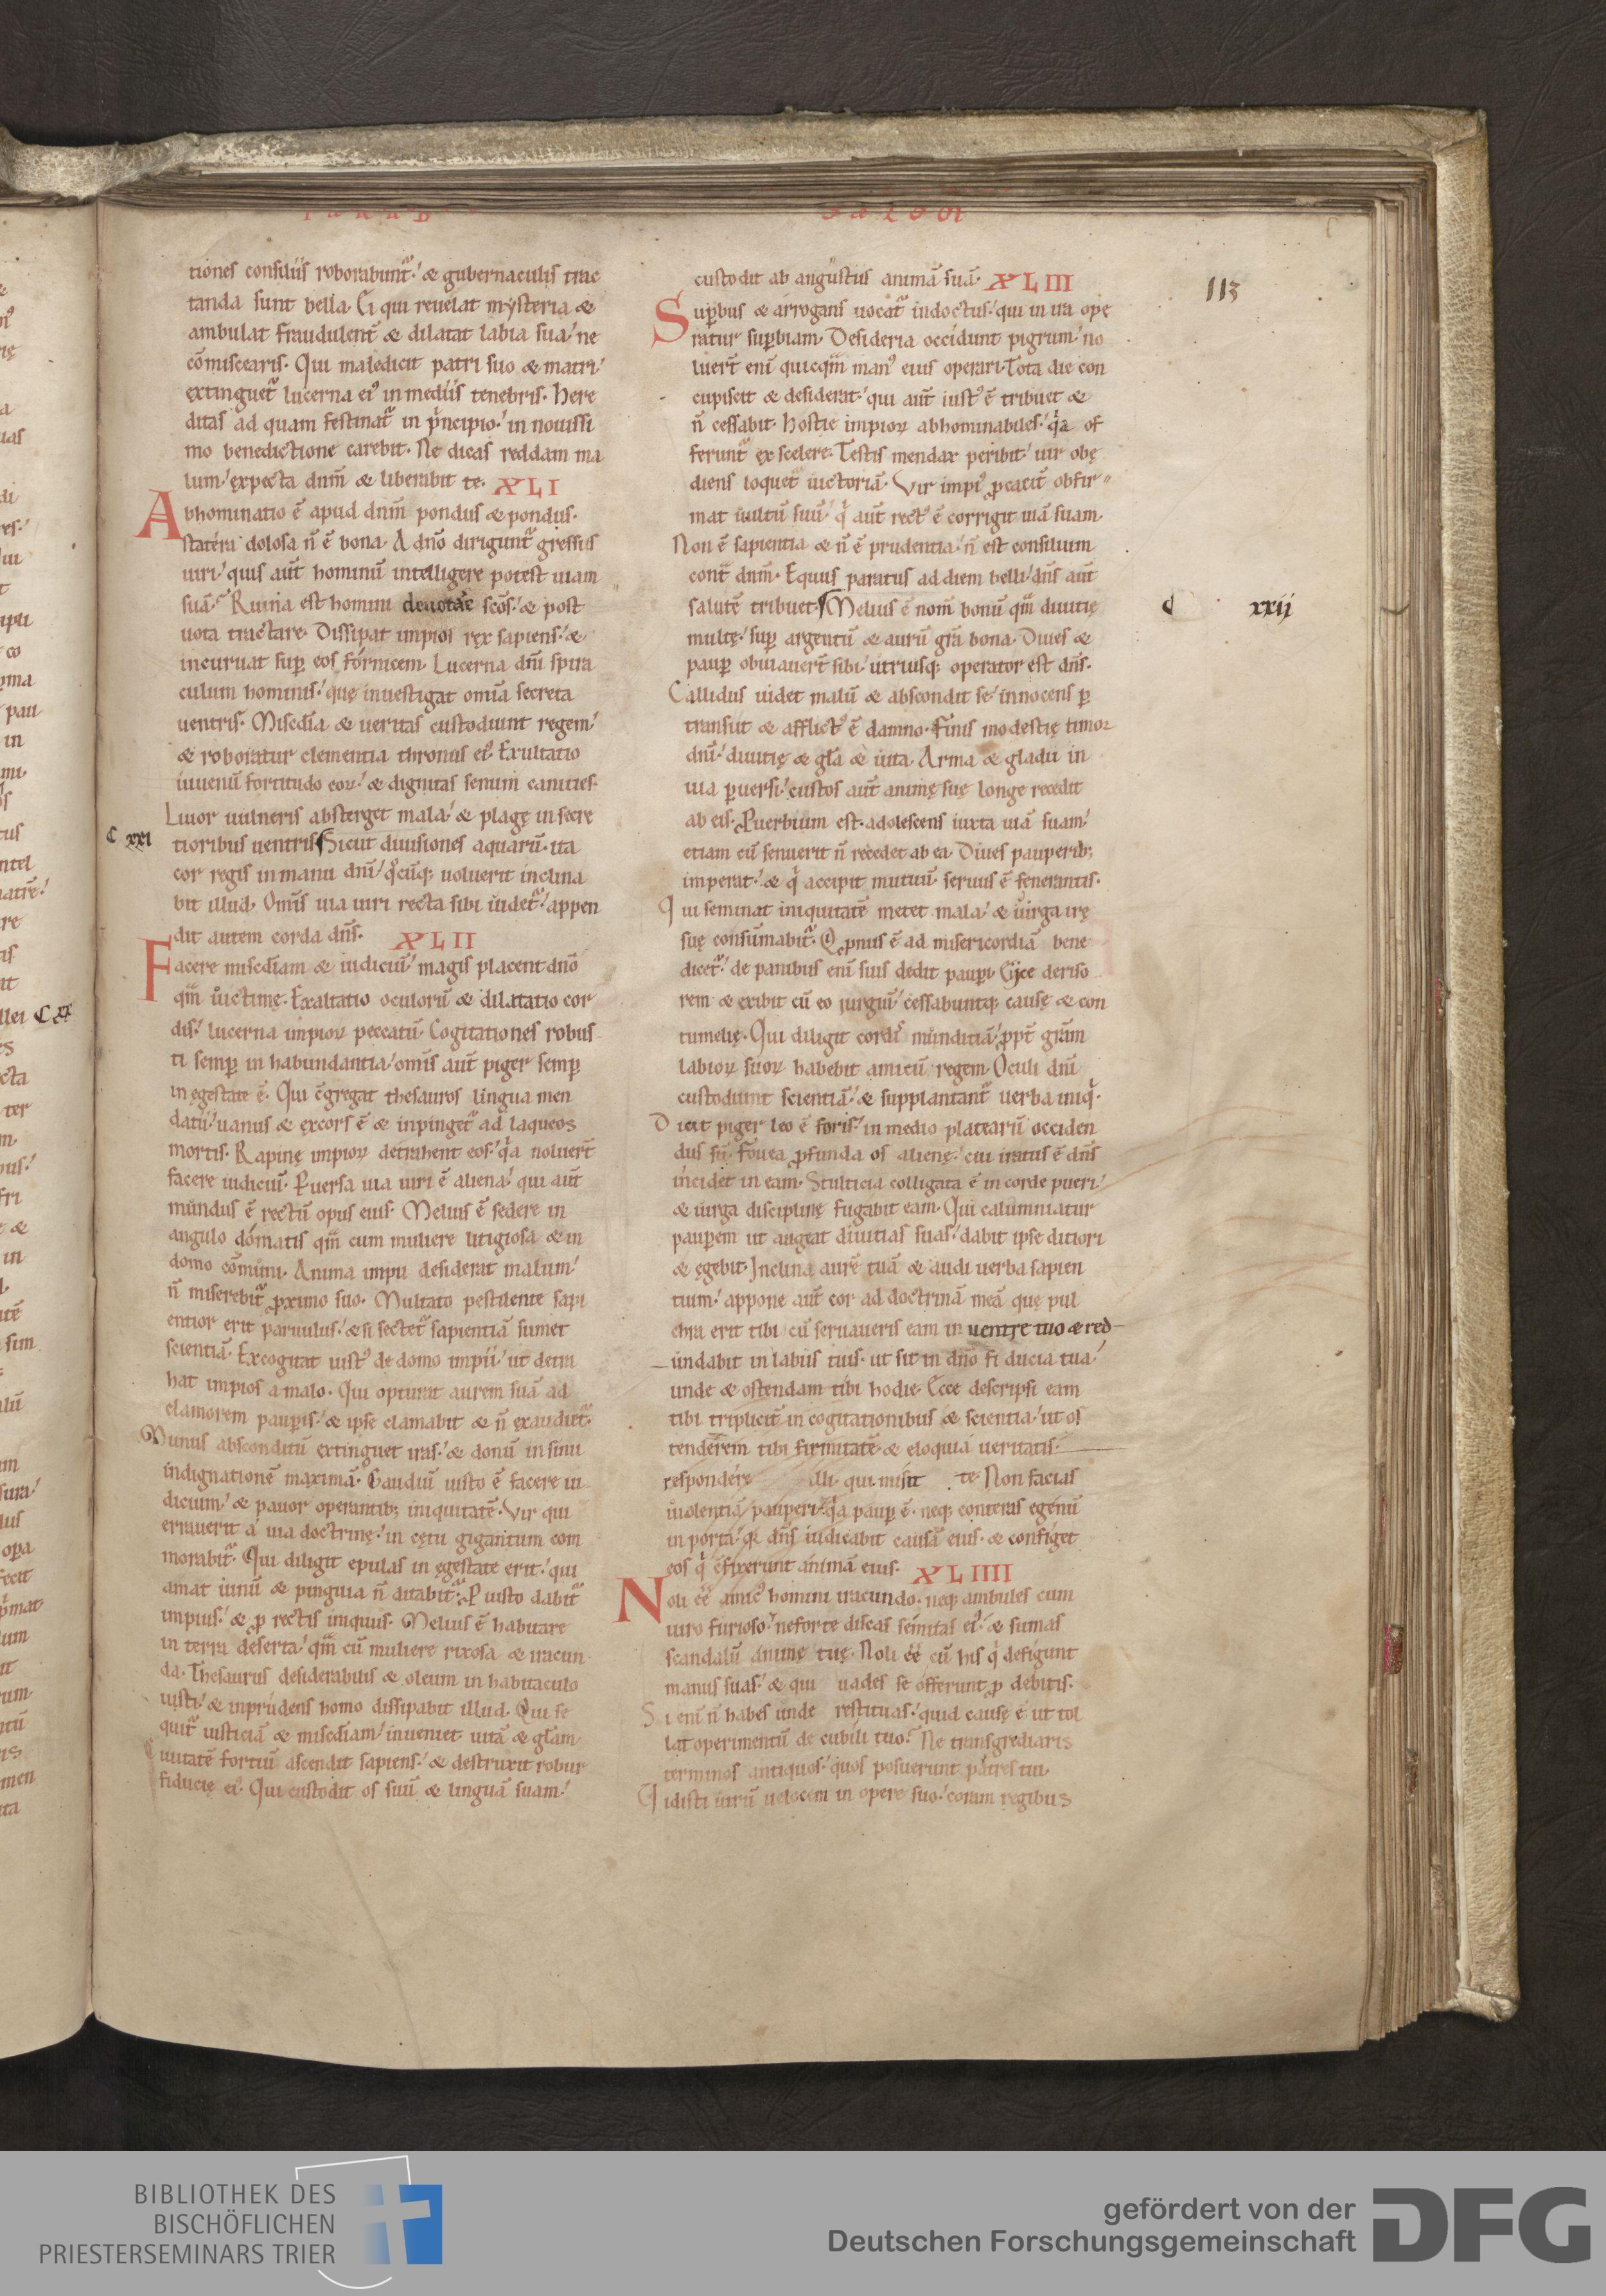 PARAB
SALOM
113
tiones consiliis roborabunt᷑. & gubernaculis trac
tanda sunt bella. Ei qui reuelat mysteria &
ambulat fraudulent̄ & dilatat labia sua. ne
cōmiscearis. Qui maledicit patri suo & matri.
extinguet᷑ lucerna eiꝰ in mediis tenebris. Here
ditas ad quam festinat᷑ in pͥncipio. in nouissi
mo benedictione carebit. Ne dicas reddam ma
lum. expecta dnm̄ & liberabit te. XLI
Abhominatio ē apud dnm̄ pondus & pondus.
statera dolosa n̄ ē bona. A dn̄o dirigunt᷑ gressus
uiri. quis aut̄ hominū intelligere potest uiam
suā. Ruina est homini deuotare scōs. & post
uota tractare. Dissipat impios rex sapiens. &
incuruat suꝑ eos fornicem. Lucerna dnī spira
culum hominis. quę inuestigat omīa secreta
uentris. Misc̄dīa & ueritas custodiunt regem.
& roboratur clementia thronus eiꝰ. Exultatio
iuuenū fortitudo eoꝝ. & dignitas senum canities.
Liuor uulneris absterget mala. & plagę in secre
C xxi
tioribus uentris. Sicut diuisiones aquarū. ita
cor regis in manu dnī. qͦcūq; uoluerit inclina
bit illud. Omīs uia uiri recta sibi uidet᷑. appen
dit autem corda dn̄s. XLII
Facere misc̄diam & iudiciū. magis placent dn̄o
qm̄ uictimę. Exaltatio oculorū & dilatatio cor
dis. lucerna impioꝝ peccatū. Cogitationes robus
ti semꝑ in habundantia. omīs aut̄ piger semꝑ
in egestate ē. Qui c̄gregat thesauros lingua men
datii. uanus & excors ē & inpinget᷑ ad laqueos
mortis. Rapinę impioꝝ detrahent eos. qͣ noluert̄
facere iudiciū. Puersa uia uiri ē aliena. qui aut̄
mundus ē rectū opus eius. Melius ē sedere in
angulo domatis qm̄ cum muliere litigiosa & in
domo cōmuni. Anima impii desiderat malum.
n̄ miserebit᷑ ꝓximo suo. Multato pestilente sapi
entior erit paruulus. & si sectet᷑ sapientiā sumet
scientiā. Excogitat iustꝰ de domo impii. ut detra
hat impios a malo. Qui opturat aurem suā ad
clamorem pauꝑis. & ipse clamabit & n̄ exaudiet᷑.
Munus absconditū extinguet iras. & donū in sinu
indignationē maximā. Gaudiū iusto ē facere iu
dicium. & pauor operantib; iniquitatē. Vir qui
errauerit a uia doctrinę. in cętu gigantum com
morabit᷑. Qui diligit epulas in egestate erit. qui
amat uinū & pinguia n̄ ditabit᷑. P iusto dabit᷑
impius. & ꝓ rectis iniquus. Melius ē habitare
in terra deserta. qm̄ cū muliere rixosa & iracun
da. Thesaurus desiderabilis & oleum in habitaculo
iusti. & inprudens homo dissipabit illud. Qui se
quit᷑ iusticiā & misc̄diam. inueniet uitā & glām.
Ciuitatē fortiū ascendit sapiens. & destruxit robur
fiducię eiꝰ. Qui custodit os suū & linguā suam.
custodit ab angustiis animā suā. XLIII
Suꝑbus & arrogans uocat᷑ indoctus. qui in ira ope
ratur suꝑbiam. Desideria occidunt pigrum. no
luert̄ enī quicqm̄ manꝰ eius operari. Tota die con
cupiscit & desiderat. qui aut̄ iustꝰ ē tribuet &
n̄ cessabit. Hostie impioꝝ abhominabiles. qͣa of
ferunt᷑ ex scelere. Testis mendax peribit. uir obę
diens loquet᷑ uictoriā. Vir impiꝰ ꝓcacit̄ obfir
mat uultū suū. qͥ aut̄ rectꝰ ē corrigit uiā suam.
Non ē sapientia & n̄ ē prudentia. n̄ est consilium
cont̄ dnm̄. Equus paratus ad diem belli. dn̄s aut̄
C xxij
salutē tribuet. Melius ē nom̄ bonū qm̄ diuitię
multę. suꝑ argentū & aurū grā bona. Diues &
pauꝑ obuiauert̄ sibi. utriusq; operator est dn̄s.
Callidus uidet malū & abscondit se. innocens ꝑ
transiit & afflictꝰ ē damno. Finis modestię timor
dnī. diuitię & glā & uita. Arma & gladii in
uia ꝑuersi. custos aut̄ animę suę longe recedit
ab eis. Puerbium est. adolescens iuxta uiā suam.
etiam cū senuerit n̄ recedet ab ea. Diues pauperib;
imperat. & qͥ accipit mutuū. seruus ē fenerantis.
Qui seminat iniquitatē metet mala. & uirga irę
suę consumabit᷑. Q ꝓnus ē ad misericordiā bene
dicet᷑. de panibus enī suis dedit pauꝑi. Eijce deriso
rem & exibit cū eo iurgiū. cessabuntq; causę & con
tumelię. Qui diligit cordis munditiā. ꝓpt̄ grām
labioꝝ suoꝝ habebit amicū regem. Oculi dnī
custodiunt scientiā. & supplantant᷑ uerba iniqͥ.
Dicit piger leo ē foris. in medio platearū occiden
dus sū. Fouea ꝓfunda os alienę. cui iratus ē dn̄s
incidet in eam. Stulticia colligata ē in corde pueri.
& uirga disciplinę fugabit eam. Qui calumniatur
pauꝑem ut augeat diuitias suas. dabit ipse ditiori
& egebit. Inclina aurē tuā & audi uerba sapien
tium. appone aut̄ cor ad doctrinā meā. quę pul
chra erit tibi cū seruaueris eam in uentre tuo & red
undabit in labiis tuis. ut sit in dn̄o fiducia tua.
unde & ostendam tibi hodie. Ecce descripsi eam
tibi triplicit̄ in cogitationibus & scientia. ut os
tenderem tibi firmitatē & eloquia ueritatis.
respondere illi. qui misit te. Non facias
uiolentiā pauperi. qͣa pauꝑ ē. neq; conteras egenū
in porta. qͣ dn̄s iudicabit causā eius. & configet
eos qͥ c̄fixerunt animā eius. XLIIII
Noli eē amicꝰ homini iracundo. neq; ambules cum
uiro furioso. ne forte discas semitas eiꝰ. & sumas
scandalū animę tuę. Noli eē cū his qͥ defigunt
manus suas. & qui uades se offerunt ꝓ debitis.
Si enī n̄ habes unde restituas. quid causę ē ut tol
lat operimentū de cubili tuo. Ne transgrediaris
terminos antiquos. quos posuerunt patres tui.
Uidisti uirū uelocem in opere suo. coram regibus
BIBLIOTHEK DES
BISCHÖFLICHEN
PRIESTERSEMINARS TRIER
gefördert von der
Deutschen Forschungsgemeinschaft
DFG